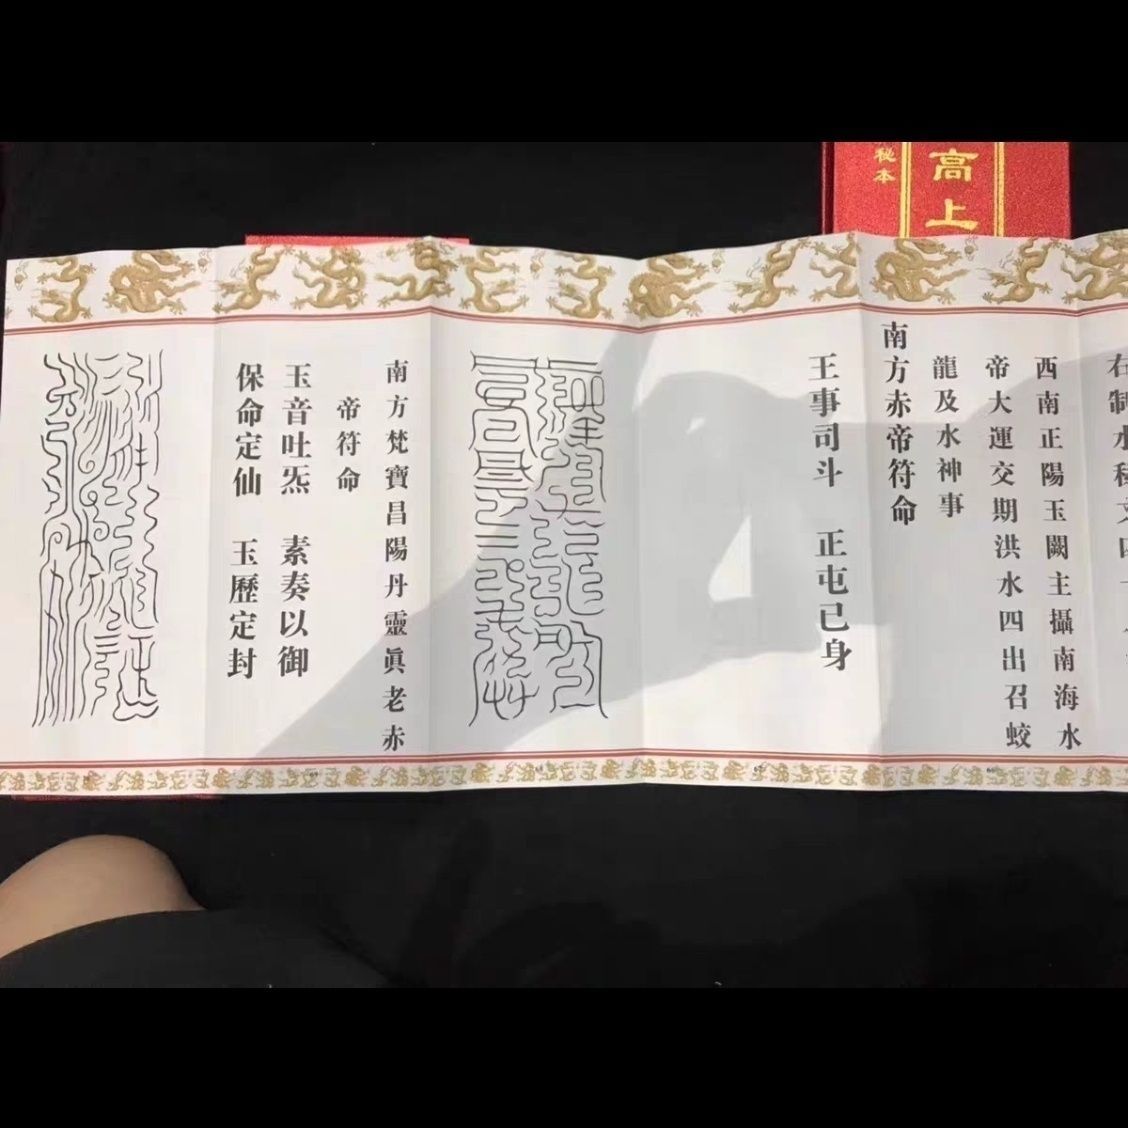 高上
秘本
右制水
西南正陽玉闕主攝南海水
帝大運交期洪水四出召蛟
龍及水神事
南方赤帝符命
王事司斗　正屯已身
南方梵寶昌陽丹靈眞老赤
帝符命
玉音吐炁　素奏以御
保命定仙　玉歷定封